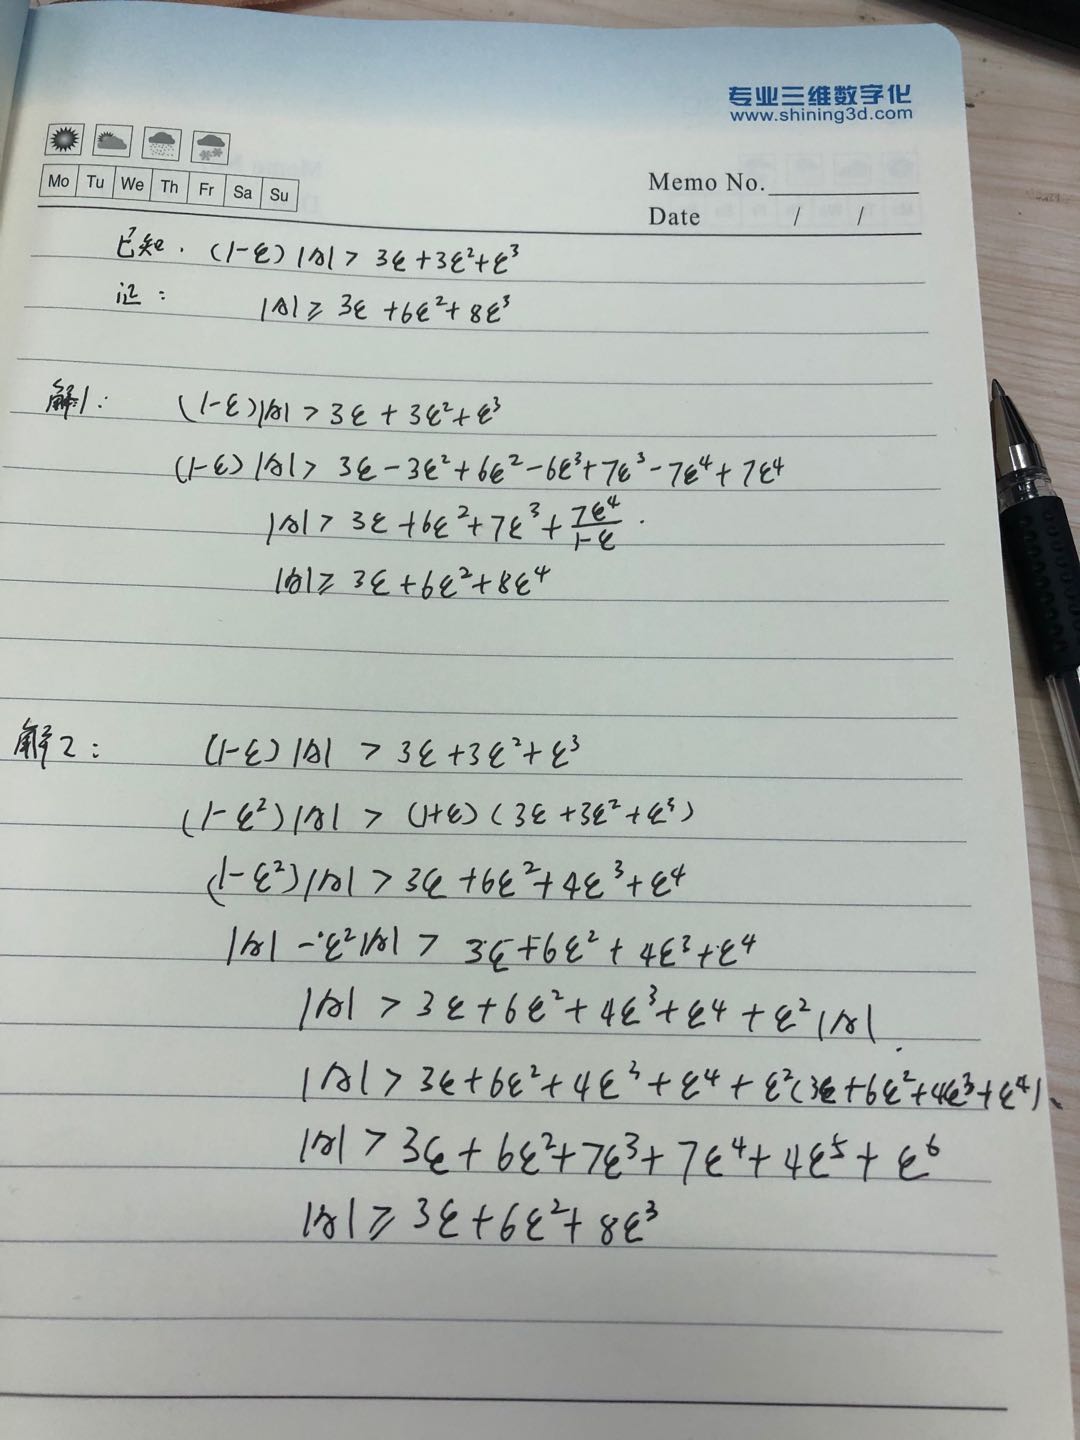 专业三维数字化
www.shining3d.com
Mo Tu We Th Fr Sa Su
Memo No.
Date / /
已知. (1-ε)|A| > 3ε+3ε²+ε³
证: |A| ≥ 3ε+6ε²+8ε³
解1: (1-ε)|A| > 3ε+3ε²+ε³
(1-ε)|A| > 3ε-3ε²+6ε²-6ε³+7ε³-7ε⁴+7ε⁴
|A| > 3ε+6ε²+7ε³+7ε⁴/(1-ε).
|A| ≥ 3ε+6ε²+8ε⁴
解2: (1-ε)|A| > 3ε+3ε²+ε³
(1-ε²)|A| > (1+ε)(3ε+3ε²+ε³)
(1-ε²)|A| > 3ε+6ε²+4ε³+ε⁴
|A|-ε²|A| > 3ε+6ε²+4ε³+ε⁴
|A| > 3ε+6ε²+4ε³+ε⁴+ε²|A|.
|A| > 3ε+6ε²+4ε³+ε⁴+ε²(3ε+6ε²+4ε³+ε⁴)
|A| > 3ε+6ε²+7ε³+7ε⁴+4ε⁵+ε⁶
|A| ≥ 3ε+6ε²+8ε³